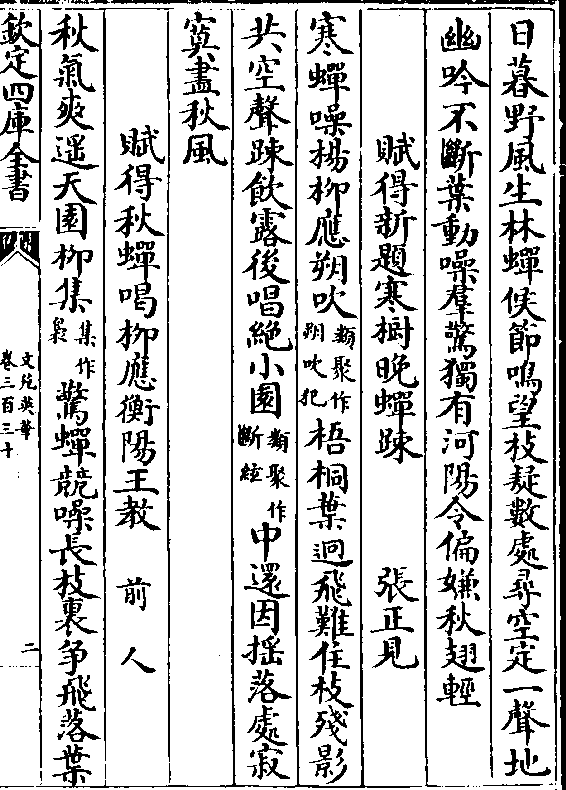 日暮野風生林蟬候節鳴望枝疑數處尋空定一聲地
幽吟不斷葉動噪羣驚獨有河陽令偏嫌秋翅輕
賦得新題寒樹晚蟬踈 張正見
寒蟬噪楊柳應朔吹類聚作朔吹犯梧桐葉迥飛難住枝殘影
共空聲踈飲露後唱絶小園類聚作斷絃中還因揺落處寂
寞盡秋風
賦得秋蟬喝柳應衡陽王教 前人
秋氣爽遥天園柳集集作裊驚蟬競噪長枝裏爭飛落葉
欽定四庫全書
文苑英華
卷三百三十
二